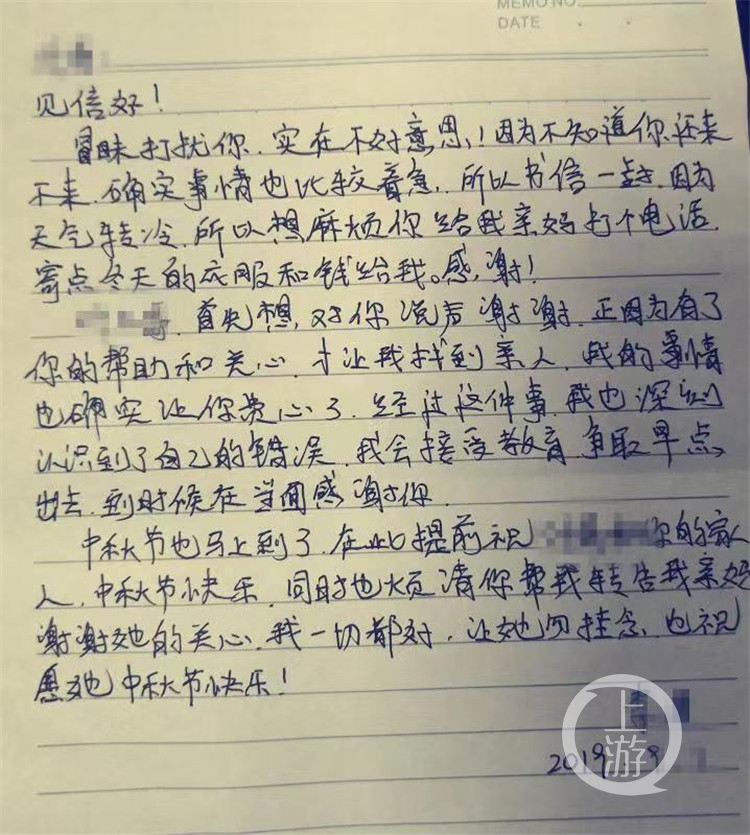 MEMO NO.
DATE . .
见信好！
冒昧打扰你，实在不好意思！因为不知道你还来
不来，确实事情也比较着急，所以书信一封，因为
天气转冷，所以想麻烦你给我亲妈打个电话，
寄点冬天的衣服和钱给我。感谢！
首先想，对你说声谢谢，正因为有了
你的帮助和关心，才让我找到亲人，我的事情
也确实让你费心了，经过这件事，我也深刻
认识到了自己的错误，我会接受教育，争取早点
出去，到时候在当面感谢你。
中秋节也马上到了，在此提前祝 你的家
人，中秋节快乐，同时也烦请你帮我转告我亲妈
谢谢她的关心，我一切都好，让她勿挂念，也祝
愿她中秋节快乐！
李
2019.9
上游